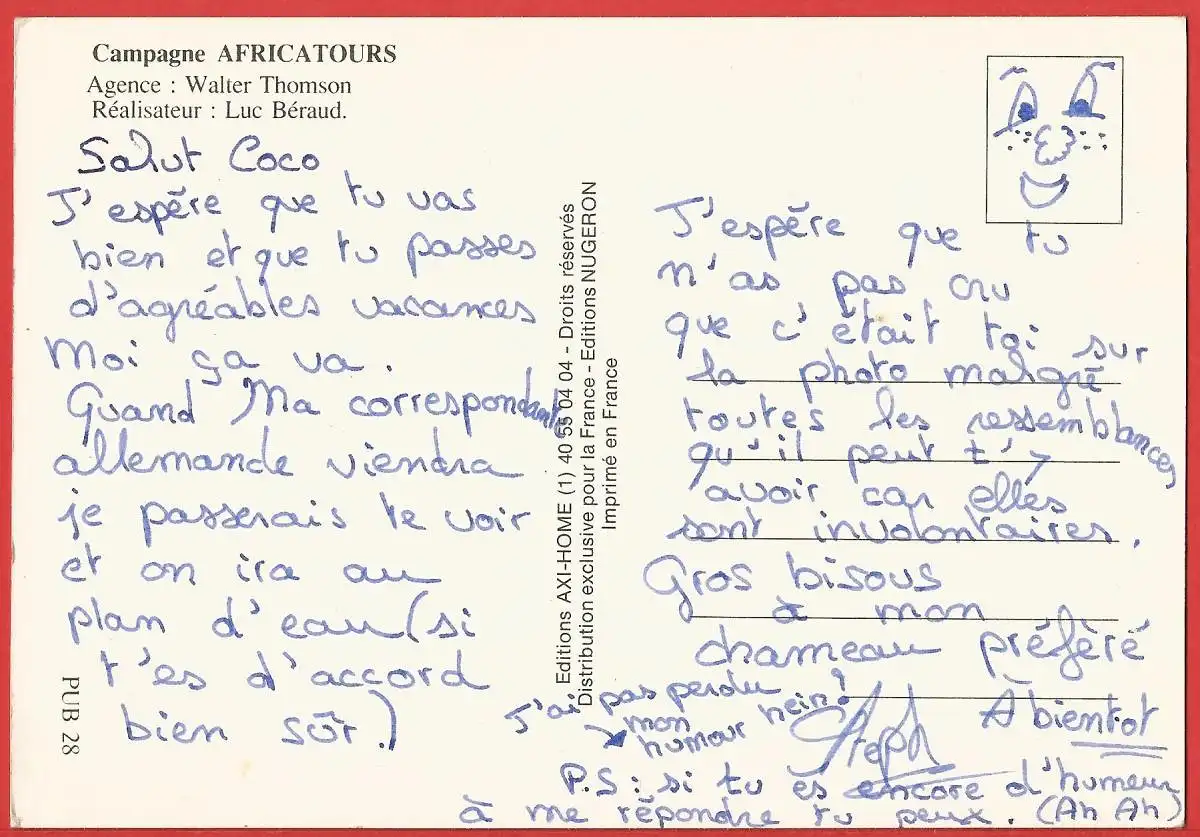 Campagne AFRICATOURS
Agence : Walter Thomson
Réalisateur : Luc Béraud.
Salut Coco
J'espère que tu vas
bien et que tu passes
d'agréables vacances
Moi ça va.
Quand Ma correspondante
allemande viendra
je passerais te voir
et on ira au
plan d'eau (si
t'es d'accord
bien sûr.)
PUB 28
Editions AXI-HOME (1) 40 55 04 04 - Droits réservés
Distribution exclusive pour la France - Editions NUGERON
Imprimé en France
J'espère que tu
n'as pas cru
que c'était toi sur
la photo malgré
toutes les ressemblances
qu'il peut t'y
avoir car elles
sont involontaires.
Gros bisous
à mon
chameau préfèré
J'ai pas perdu
mon
humour hein?
Steph
À bientot
P.S: si tu ès encore d'humeur
à me répondre tu peux. (Ah Ah)